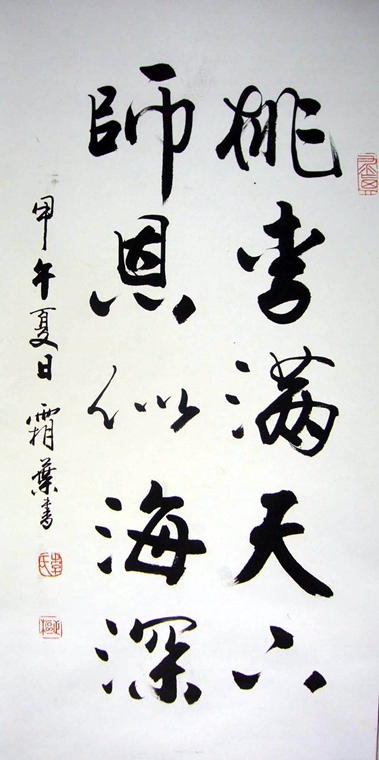 桃李满天下
師恩似海深
甲午夏日霜葉书